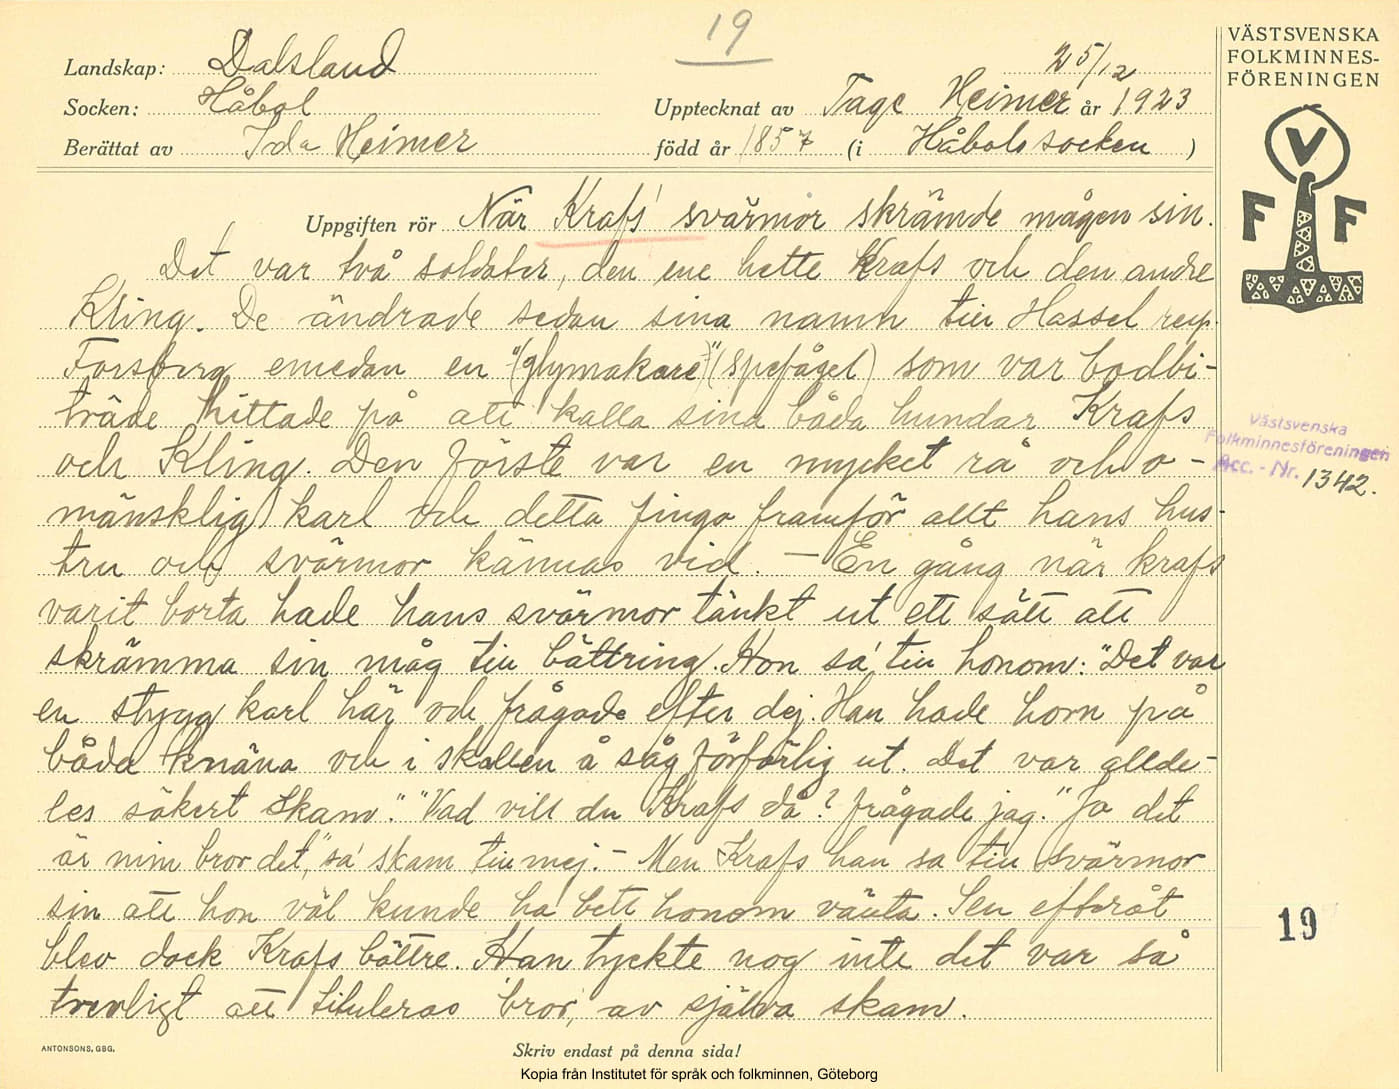 19
VÄSTSVENSKA
FOLKMINNES-
FÖRENINGEN
V
F F
Landskap: Dalsland 25/12
Socken: Håbol Upptecknat av Tage Heimer år 1923
Berättat av Ida Heimer född år 1857 (i Håbols socken )
Uppgiften rör När Krafs' svärmor skrämde mågen sin.
Det var två soldater, den ene hette Krafs och den andre
Kling. De ändrade sedan sina namn till Hassel resp.
Forsberg emedan en "(glymakare)" (spefågel) som var bodbi-
träde hittade på att kalla sina båda hundar Krafs
och Kling. Den förste var en mycket rå och o-
mänsklig karl och detta fingo framför allt hans hus-
tru och svärmor kännas vid. — En gång när krafs
varit borta hade hans svärmor tänkt ut ett sätt att
skrämma sin måg till bättring. Hon sa' till honom: "Det var
en stygg karl här och frågade efter dej. Han hade horn på
båda knäna och i skallen å såg förfärlig ut. Det var allde-
les säkert skam". "Vad vill du Krafs då? frågade jag." Jo det
är min bror det," sa' skam till mej. - Men Krafs han sa till svärmor
sin att hon väl kunde ha bett honom vänta. Sen efteråt
blev dock Krafs bättre. Han tyckte nog inte det var så
trevligt att tituleras 'bror' av själva skam.
Västsvenska
Folkminnesföreningen
Acc. - Nr. 1342.
19
ANTONSONS, GBG.
Skriv endast på denna sida!
Kopia från Institutet för språk och folkminnen, Göteborg